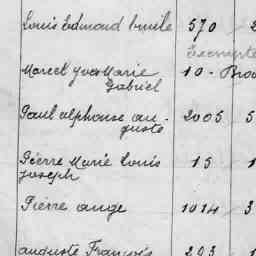 Louis Edmond Emile 570 2
Exempté
Marcel Yves Marie 10 - Brou
Gabriel
Paul alphonse au- 2005 5
guste
Pierre Marie Louis 15 1
Joseph
Pierre ange 1014 3
auguste François 293 1